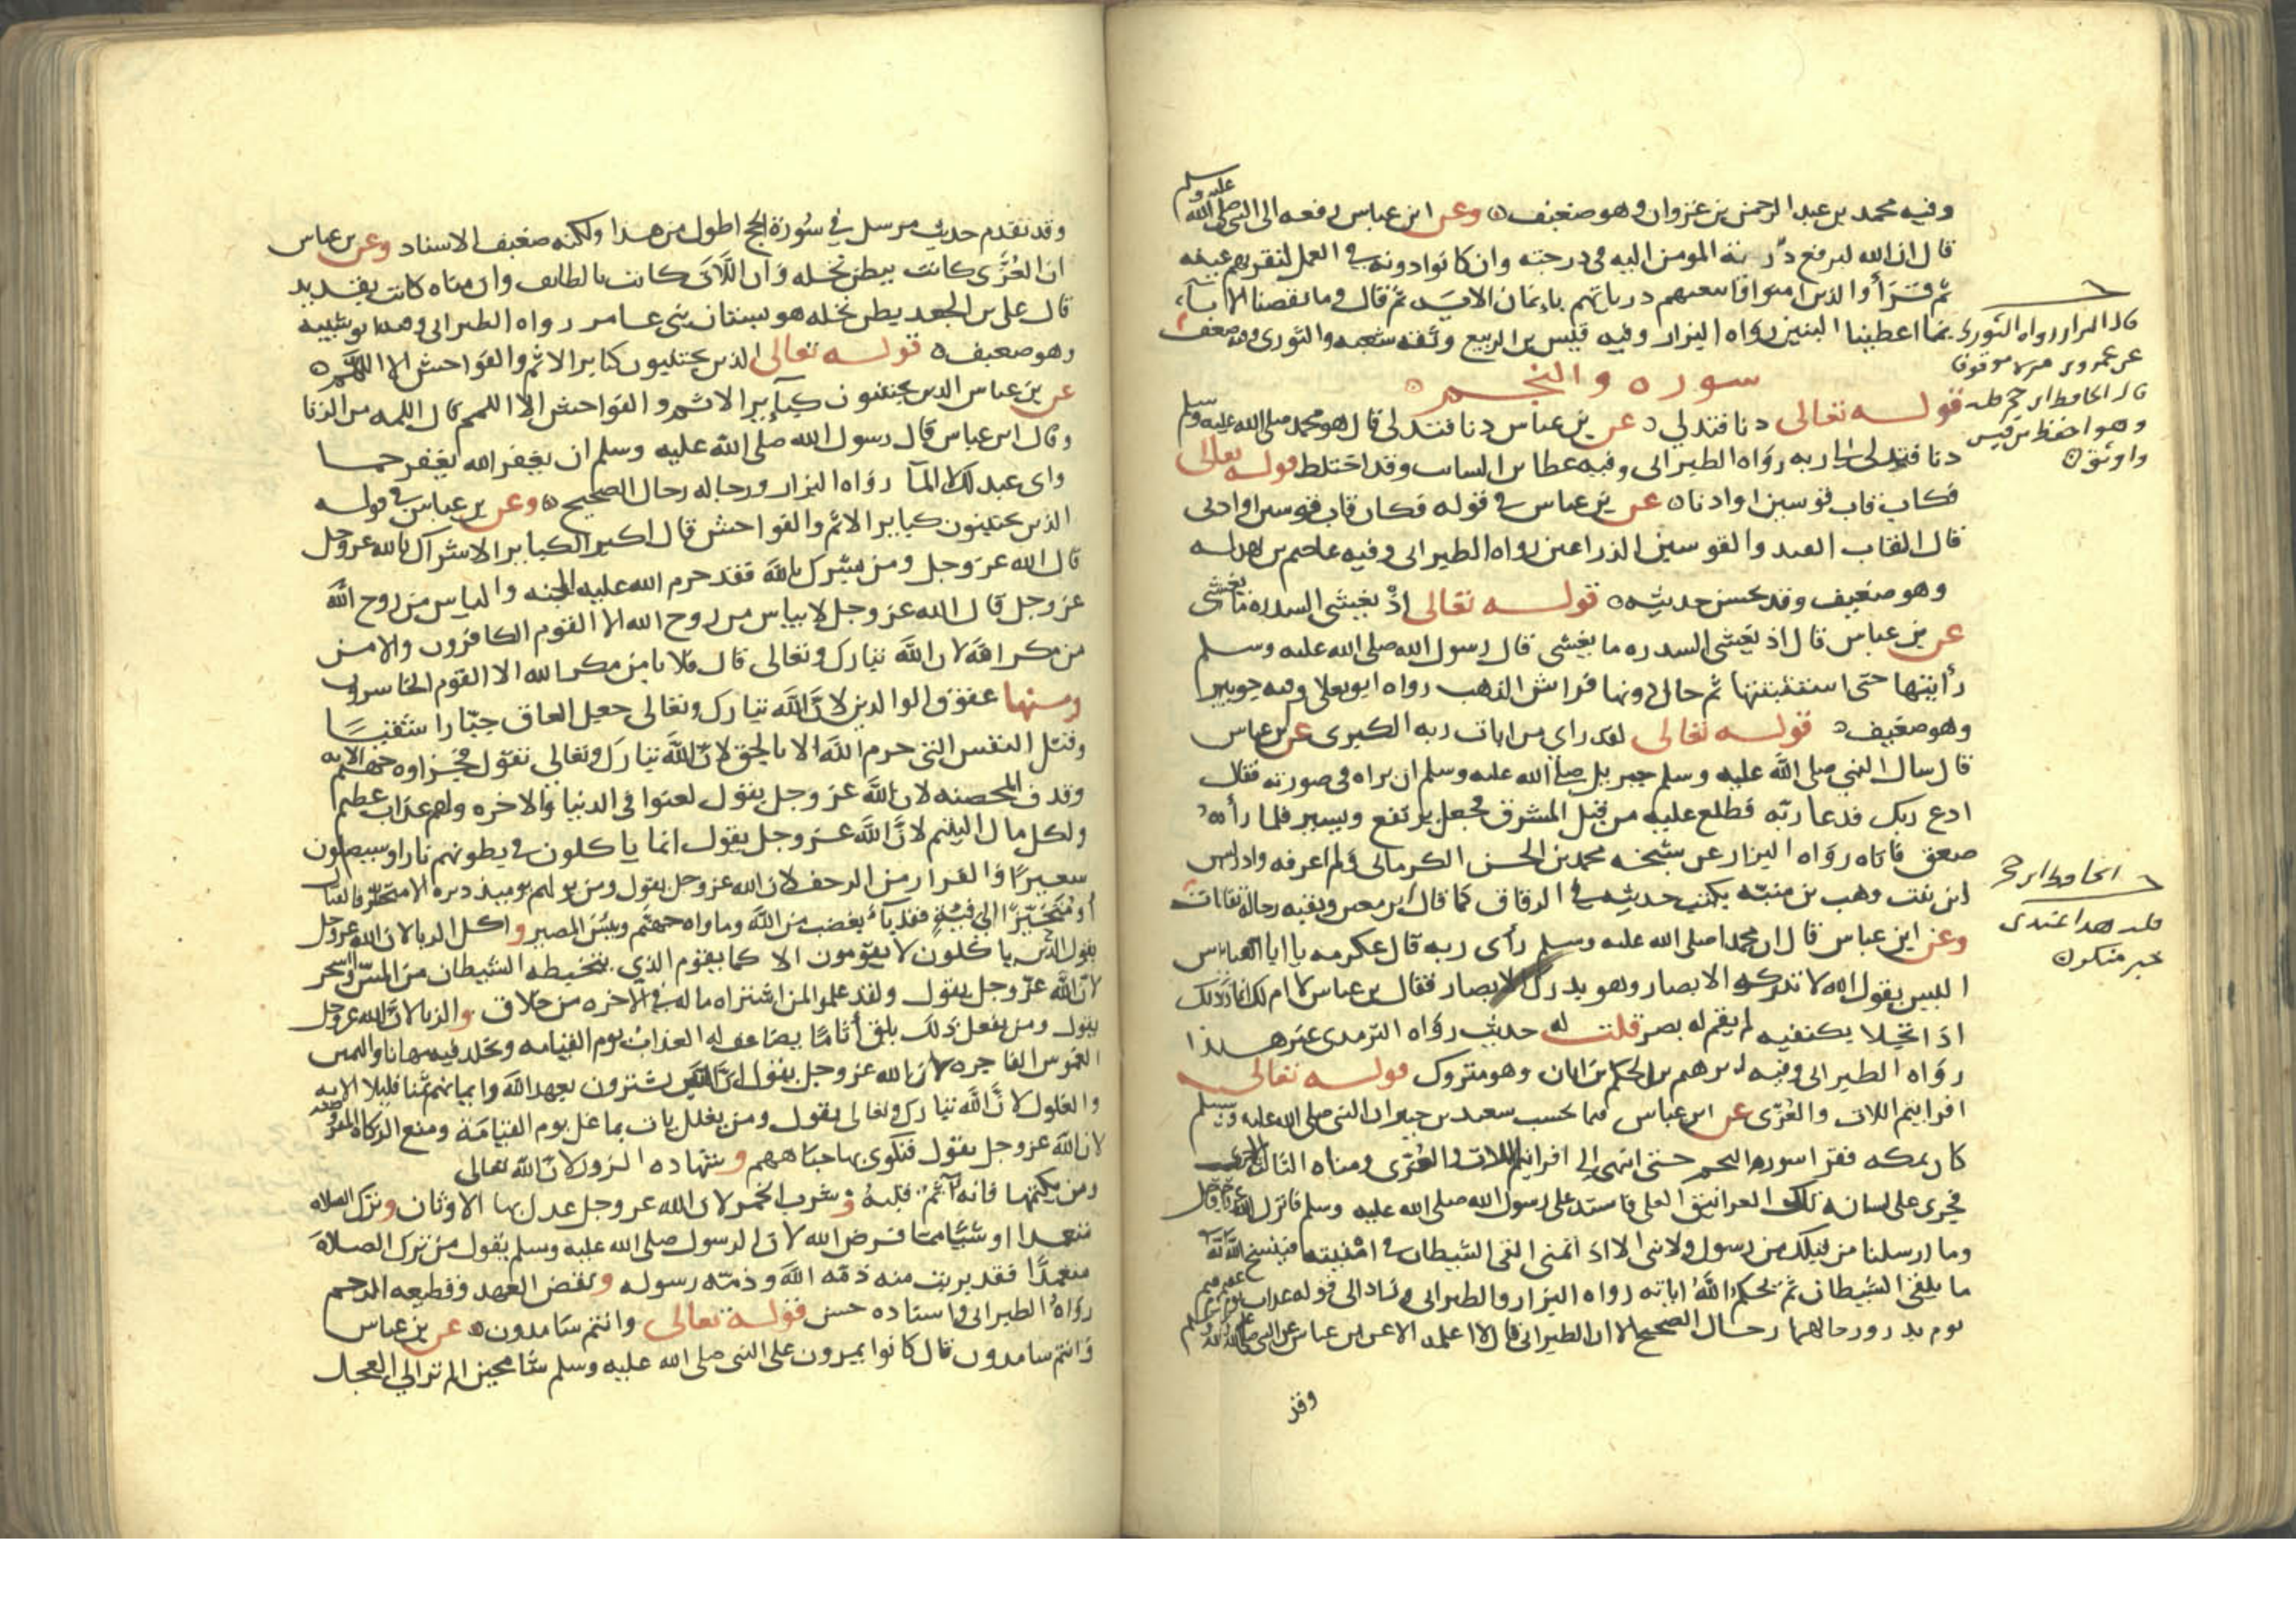 وفيه محمد بن عبد الرحمن بن غزوان وهو ضعيف وعن ابن عباس رفعه الى النبي صلى الله عليه وسلم
قال ان الله ليرفع ذرية المومن اليه في درجته وان كانوا دونه في العمل لتقر بهم عينه
ثم قرأ والذين امنوا واتبعتهم ذرياتهم بايمان الايه ثم قال وما نقصنا الاباء
بما اعطينا البنين رواه البزار وفيه قيس بن الربيع وثقه شعبه والثوري وفيه ضعف
سوره والنجم
قوله تعالى دنا فتدلى عن بن عباس دنا فتدلى قال هو محمد صلى الله عليه وسلم
دنا فتدلى الى ربه رواه الطبراني وفيه عطا بن السائب وقد اختلط قوله تعالى
فكان قاب قوسين او ادنا عن بن عباس في قوله فكان قاب قوسين او ادنى
قال القاب القيد والقوسين الذراعين رواه الطبراني وفيه عاصم بن بهدله
وهو ضعيف وقد يحسن حديثه قوله تعالى اذ يغشى السدره ما يغشى
عن بن عباس قال اذ يغشى السدره ما يغشى قال رسول الله صلى الله عليه وسلم
رأيتها حتى استثبتتها ثم حال دونها فراش الذهب رواه ابو يعلا وفيه جويبر
وهو ضعيف قوله تعالى لقد راى من ايات ربه الكبرى عن بن عباس
قال سال النبي صلى الله عليه وسلم جبريل صلى الله عليه وسلم ان يراه في صورته فقال
ادع ربك فدعا ربه فطلع عليه من قبل المشرق فجعل يرتفع ويسير فلما رأه
صعق فاتاه رواه البزار عن شيخه محمد بن الحسن الكرماني ولم اعرفه وادريس
ابن بنت وهب بن منبه يكتب حديثه في الرقاق كما قال ابن معين وبقيه رجاله ثقات
وعن ابن عباس قال ان محمدا صلى الله عليه وسلم رأى ربه قال عكرمه يا ابا العباس
اليس يقول الله لا تدركه الابصار وهو يدرك الابصار فقال بن عباس لا ام لك انما ذلك
اذا تجلا بكيفيه لم يقم له بصر قلت له حديث رواه الترمذي غير هذا
رواه الطبراني وفيه ابرهيم بن الحكم بن ابان وهو متروك قوله تعالى
افرايتم اللات والعزى عن ابن عباس فيما يحسب سعيد بن جبير ان النبي صلى الله عليه وسلم
كان بمكه فقرا سوره النجم حتى انتهى الى افرايتم اللات والعزى ومناه الثالثه الاخرى
فجرى على لسانه تلك الغرانيق العلى فاستد على رسول الله صلى الله عليه وسلم فانزل الله
وما ارسلنا من قبلك من رسول ولا نبي الا اذا تمنى القى الشيطان في امنيته فينسخ الله
ما يلقي الشيطان ثم يحكم الله اياته رواه البزار والطبراني وزاد الى قوله عذاب يوم عقيم
يوم بدر ورجالهما رجال الصحيح الا ان الطبراني قال لا اعلمه الا عن ابن عباس عن النبي صلى الله عليه وسلم
وقد
قال البزار رواه الثوري
عن عمرو بن مره موقوفا
قال الحافظ ابن حجر قلت
وهو احفظ من قيس
واوثق
الحافظ ابن حجر
قلت هذا عندي
خبر منكر
وقد تقدم حديث مرسل في سورة الحج اطول من هذا ولكنه ضعيف الاسناد وعن بن عباس
ان العزى كانت ببطن نخله وان اللات كانت بالطايف وان مناه كانت بقديد
قال علي بن الجعد بطن نخله هو بستان بني عامر رواه الطبراني وفيه ابو شيبه
وهو ضعيف قوله تعالى الذين يجتنبون كباير الاثم والفواحش الا اللمم
عن بن عباس الذين يجتنبون كباير الاثم والفواحش الا اللمم قال اللمه من الزنا
وقال ابن عباس قال رسول الله صلى الله عليه وسلم ان تغفر الله تغفر جما
واي عبد لك لا الما رواه البزار ورجاله رجال الصحيح وعن بن عباس في قوله
الذين يجتنبون كباير الاثم والفواحش قال اكبر الكباير الاشراك بالله عز وجل
قال الله عز وجل ومن يشرك بالله فقد حرم الله عليه الجنه والياس من روح الله
عز وجل قال الله عز وجل لا يياس من روح الله الا القوم الكافرون والامن
من مكر الله لان الله تبارك وتعالى قال فلا يامن مكر الله الا القوم الخاسرون
ومنها عقوق الوالدين لان الله تبارك وتعالى جعل العاق جبارا شقيا
وقتل النفس التي حرم الله الا بالحق لان الله تبارك وتعالى يقول فجزاوه جهنم الايه
وقذف المحصنه لان الله عز وجل يقول لعنوا في الدنيا والاخره ولهم عذاب عظيم
ولكل مال اليتيم لان الله عز وجل يقول انما ياكلون في بطونهم نارا وسيصلون
سعيرا والفرار من الزحف لان الله عز وجل يقول ومن يولهم يوميذ دبره الا متحرفا لقتال
أو متحيزا الى فئة فقد باء بغضب من الله وماواه جهنم وبيس المصير واكل الربا لان الله عز وجل
يقول الذين ياكلون لا يقومون الا كما يقوم الذي يتخبطه الشيطان من المس والسحر
لان الله عز وجل يقول ولقد علموا لمن اشتراه ما له في الاخره من خلاق والزنا لان الله عز وجل
يقول ومن يفعل ذلك يلق أثاما يضاعف له العذاب يوم القيامه ويخلد فيه مهانا واليمين
الغموس الفاجره لان الله عز وجل يقول ان الذين يشترون بعهد الله وايمانهم ثمنا قليلا الايه
والغلول لان الله تبارك وتعالى يقول ومن يغلل يات بما غل يوم القيامة ومنع الزكاه المفروضه
لان الله عز وجل يقول فتكوى بها جباههم وشهاده الزور لان الله تعالى
ومن يكتمها فانه اثم قلبه وشرب الخمر لان الله عز وجل عدل بها الاوثان وترك الصلاه
متعمدا او شيا مما فرض الله لان الرسول صلى الله عليه وسلم يقول من ترك الصلاة
متعمدا فقد بريت منه ذمه الله وذمه رسوله ونقض العهد وقطيعه الرحم
رواه الطبراني واسناده حسن قوله تعالى وانتم سامدون عن بن عباس
وانتم سامدون قال كانوا يمرون على النبي صلى الله عليه وسلم شامخين الم تر الى العجل